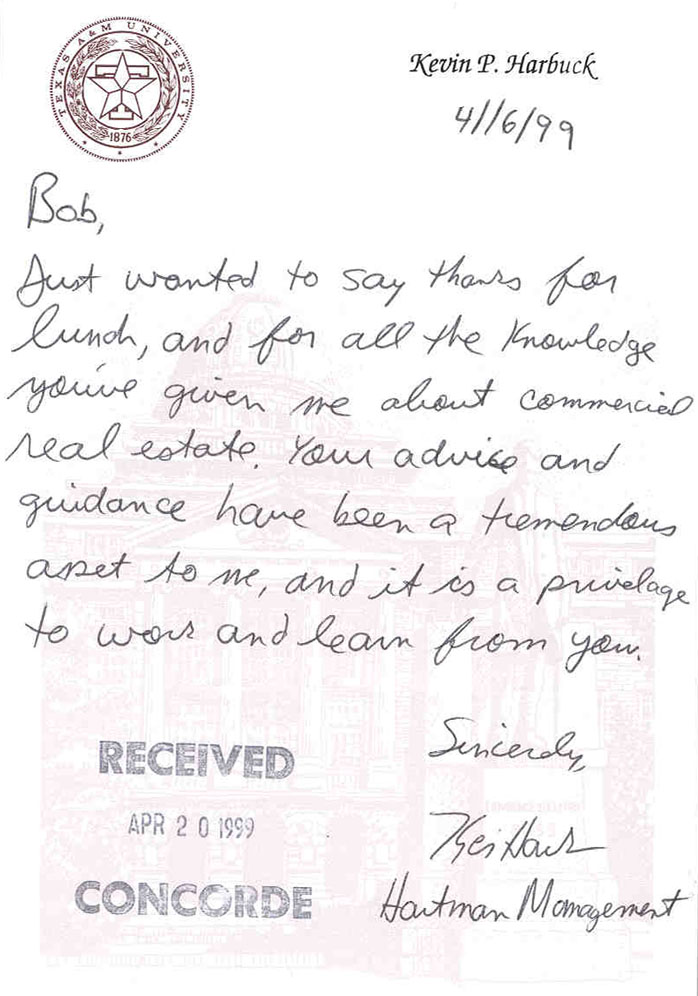 TEXAS A&M UNIVERSITY
1876
Kevin P. Harbuck
4/16/99
Bob,
Just wanted to say thanks for
lunch, and for all the knowledge
you've given me about commercial
real estate. Your advice and
guidance have been a tremendous
asset to me, and it is a privelage
to work and learn from you.
Sincerely,
Hartman Management
RECEIVED
APR 20 1999
CONCORDE